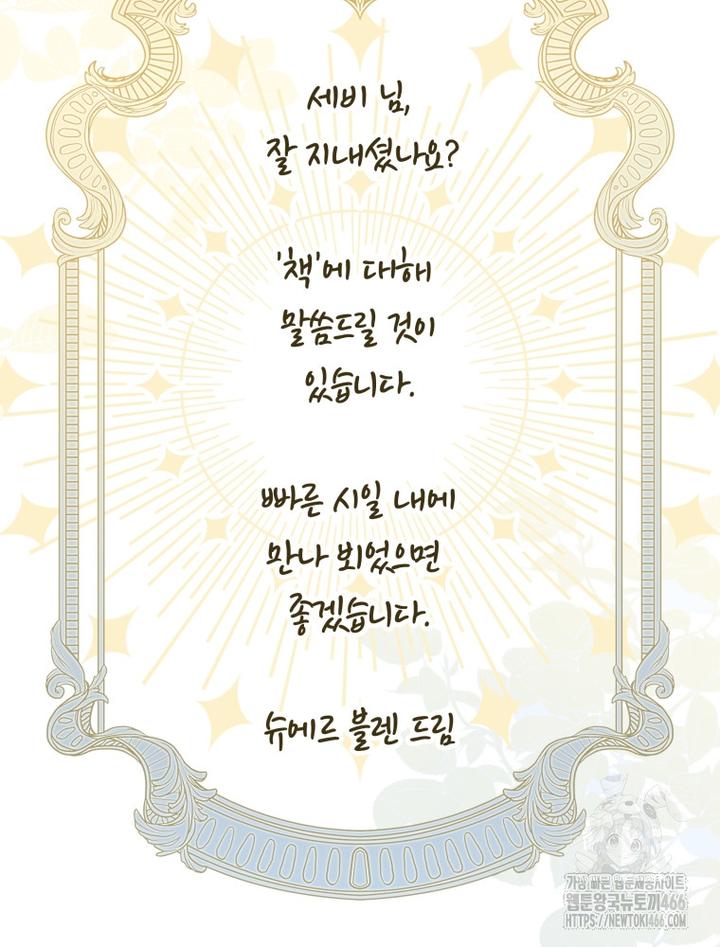 세비 님,
잘 지내셨나요?
'책'에 대해
말씀드릴 것이
있습니다.
빠른 시일 내에
만나 뵈었으면
좋겠습니다.
슈에르 블렌 드림
가장 빠른 웹툰제공사이트,
웹툰왕국뉴토끼466
HTTPS://NEWTOKI466.COM